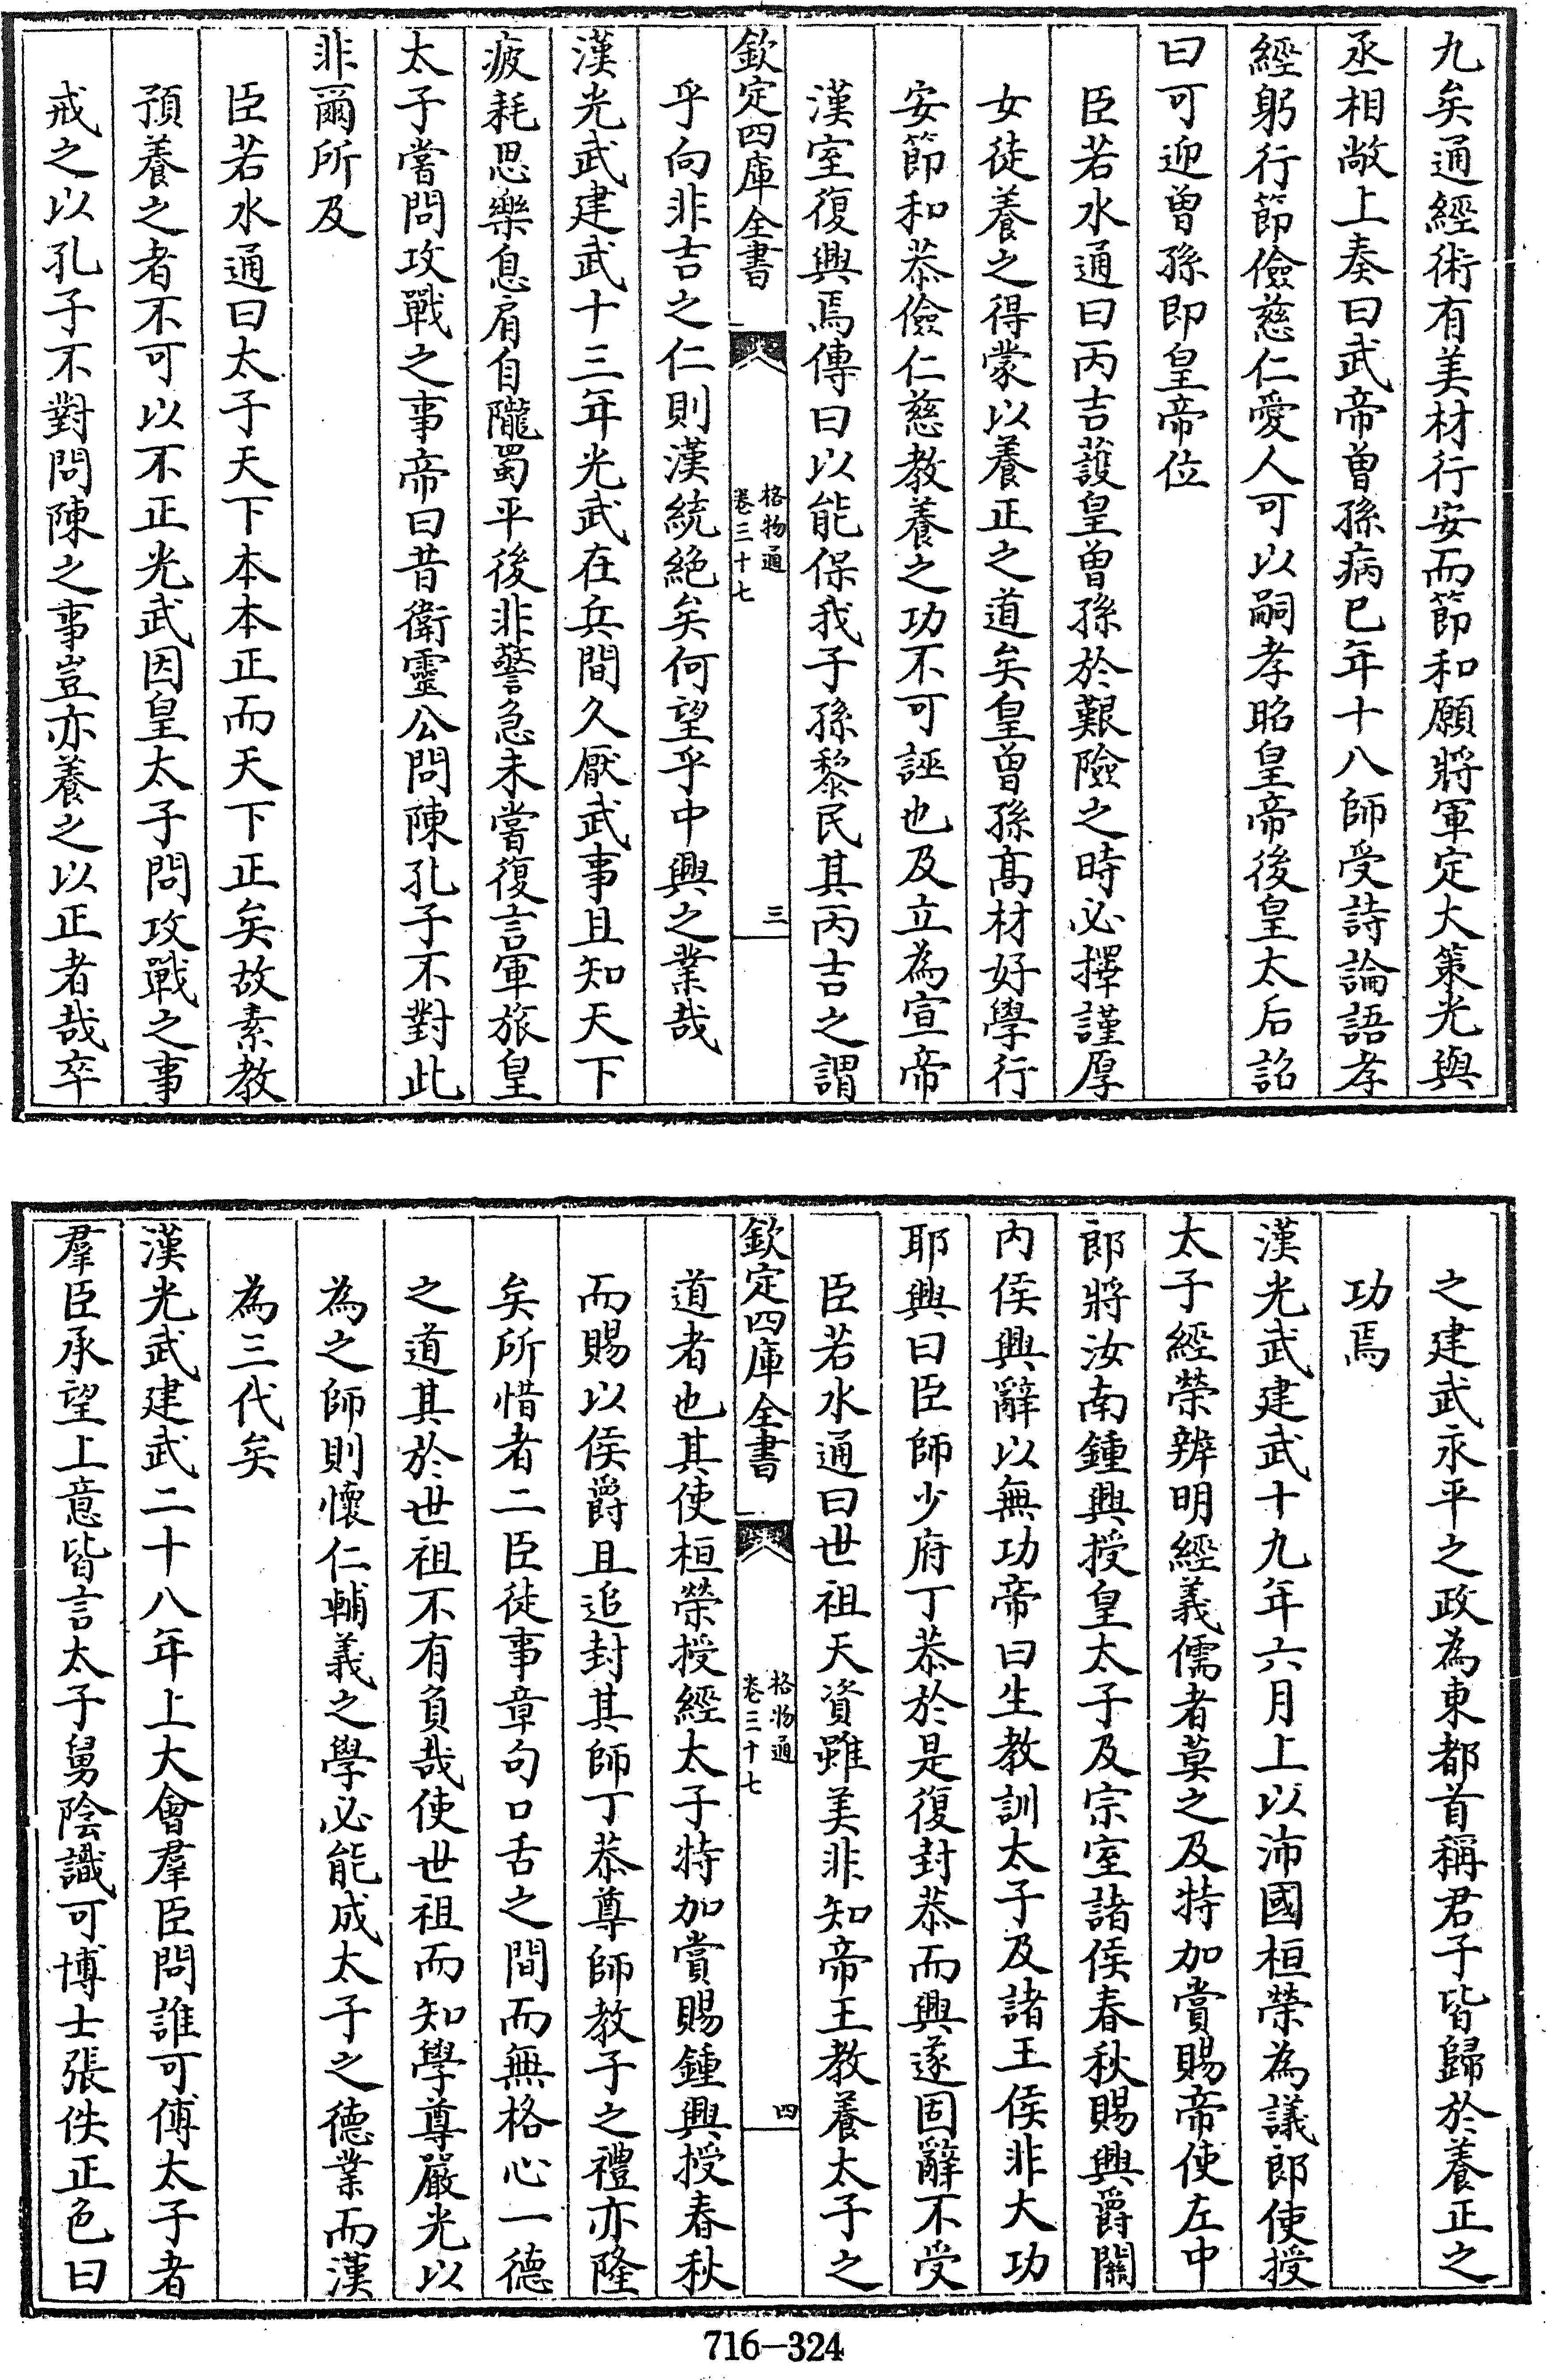 九矣通經術有美材行安而節和願將軍定大策光與
丞相敞上奏曰武帝曾孫病已年十八師受詩論語孝
經躬行節儉慈仁愛人可以嗣孝昭皇帝後皇太后詔
曰可迎曾孫即皇帝位
臣若水通曰丙吉䕶皇曾孫於艱險之時必擇謹厚
女徒養之得蒙以養正之道矣皇曾孫髙材好學行
安節和恭儉仁慈教養之功不可誣也及立為宣帝
漢室復興焉傳曰以能保我子孫黎民其丙吉之謂
欽定四庫全書
格物通
卷三十七
三
乎向非吉之仁則漢統絶矣何望乎中興之業哉
漢光武建武十三年光武在兵間久厭武事且知天下
疲耗思樂息肩自隴蜀平後非警急未嘗復言軍旅皇
太子嘗問攻戰之事帝曰昔衛靈公問陳孔子不對此
非爾所及
臣若水通曰太子天下本本正而天下正矣故素教
預養之者不可以不正光武因皇太子問攻戰之事
戒之以孔子不對問陳之事豈亦養之以正者哉卒
之建武永平之政為東都首稱君子皆歸於養正之
功焉
漢光武建武十九年六月上以沛國桓榮為議郎使授
太子經榮辨明經義儒者莫之及特加賞賜帝使左中
郎將汝南鍾興授皇太子及宗室諸侯春秋賜興爵關
内侯興辭以無功帝曰生教訓太子及諸王侯非大功
耶興曰臣師少府丁恭於是復封恭而興遂固辭不受
臣若水通曰世祖天資雖美非知帝王教養太子之
欽定四庫全書
格物通
卷三十七
四
道者也其使桓榮授經太子特加賞賜鍾興授春秋
而賜以侯爵且追封其師丁恭尊師教子之禮亦隆
矣所惜者二臣徒事章句口舌之間而無格心一德
之道其於世祖不有負哉使世祖而知學尊嚴光以
為之師則懷仁輔義之學必能成太子之德業而漢
為三代矣
漢光武建武二十八年上大會羣臣問誰可傅太子者
羣臣承望上意皆言太子舅陰識可博士張佚正色曰
716-324